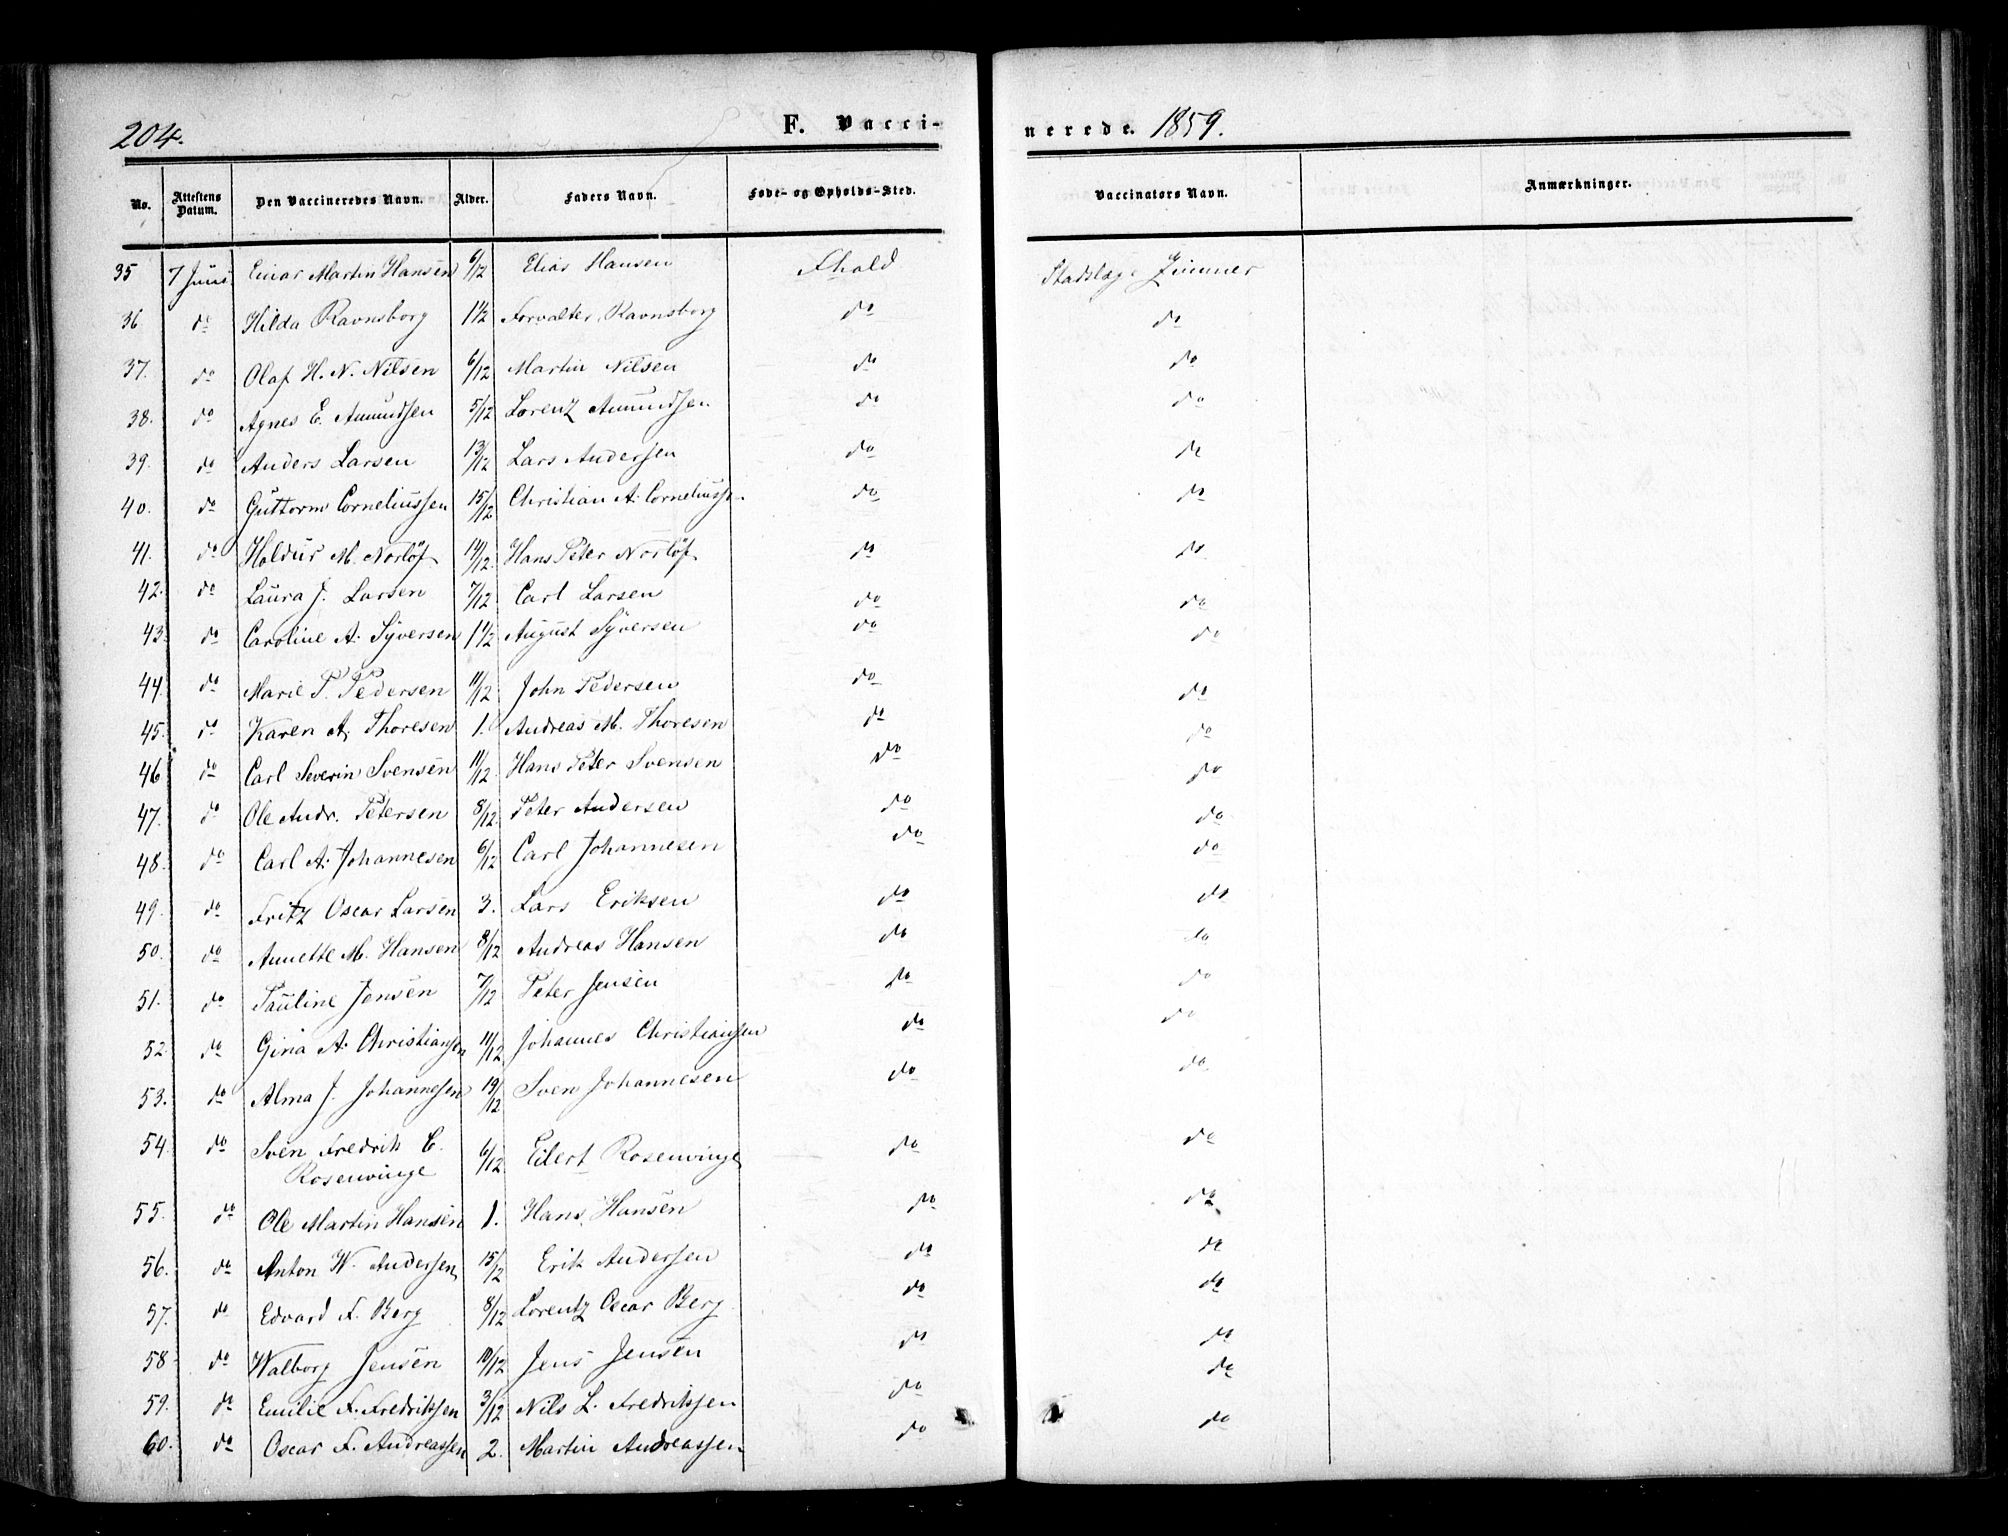 204.
F. Vaccinerede. 1859.
No. Attestens Datum. Den Vaccineredes Navn. Alder. Faders Navn. Føde- og Opholds-Sted. Vaccinators Navn. Anmærkninger.
35 7 Juni Einar Martin Hansen 6/12 Elias Hansen Fhald Stadslæge Zimmer
36 do Hilda Ravnsborg 1½ Forvalter Ravnsborg do do
37. do Olaf H. N. Nilsen 6/12 Martin Nilsen do do
38. do Agnes E. Amundsen 5/12 Lorenz Amundsen do do
39. do Anders Larsen 13/12 Lars Andersen do do
40. do Guttorm Corneliussen 15/12 Christian A. Corneliussen do do
41. do M. Norlöf 14/12 Hans Peter Norlöf do do
42. do Laura J. Larsen 7/12 Carl Larsen do do
43. do Caroline A. Syversen 1½ August Syversen do do
44. do Marie P. Pedersen 11/12 John Pedersen do do
45. do Karen A. Thoresen 1. Andreas M. Thoresen do do
46 do Carl Severin Svensen 11/12 Hans Peter Svensen do do
47. do Ole Andr. Petersen 8/12 Peter Andersen do do
48. do Carl A. Johannesen 6/12 Carl Johannesen do do
49. do Fritz Oscar Larsen 3. Lars Eriksen do do
50. do Annette M. Hansen 8/12 Andreas Hansen do do
51. do Pauline Jensen 7/12 Peter Jensen do do
52. do Gina A. Christiansen 11/12 Johannes Christiansen do do
53. do Alma J. Johannesen 19/12 Sven Johannesen do do
54. do Sven Fredrik C. 6/12 Eilert Rosenvinge do do
Rosenvinge
55. do Ole Martin Hansen 1. Hans Hansen do do
56. do Anton W. Andersen 15/12 Erik Andersen do do
57. do Edvard F. Berg 8/12 Lorentz Oscar Berg do do
58 do Walborg Jensen 10/12 Jens Jensen do do
59. do Emilie F. Fredriksen 3/12 Nils L. Fredriksen do do
60. do Oscar F. Andreassen 2. Martin Andreassen do do